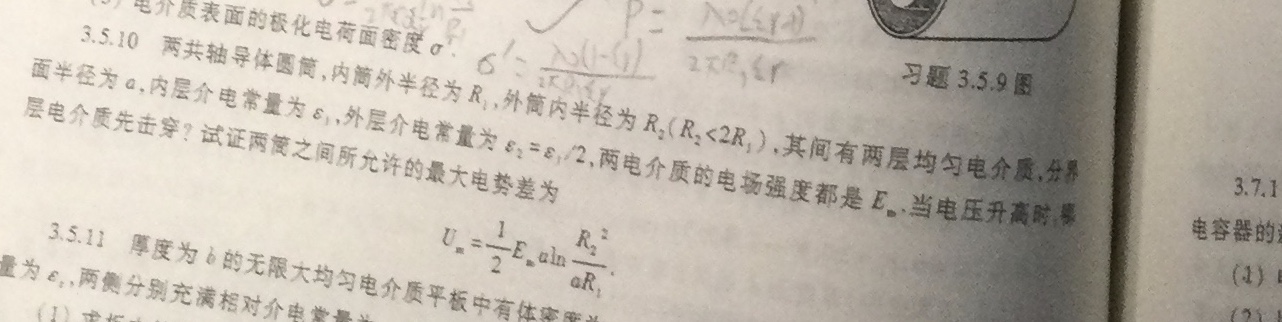 (3) 电介质表面的极化电荷面密度σ'.
P=
σ'=
习题 3.5.9 图
3.5.10 两共轴导体圆筒,内筒外半径为R₁,外筒内半径为R₂(R₂<2R₁),其间有两层均匀电介质,分界
面半径为a,内层介电常量为ε₁,外层介电常量为ε₂=ε₁/2,两电介质的电场强度都是Eₘ.当电压升高时,哪
层电介质先击穿?试证两筒之间所允许的最大电势差为
Uₘ=1/2 Eₘaln R₂²/aR₁.
3.5.11 厚度为b的无限大均匀电介质平板中有体密度为
量为ε₁,两侧分别充满相对介电常量为
(1) 求板
3.7.1
电容器的
(1)
(2)